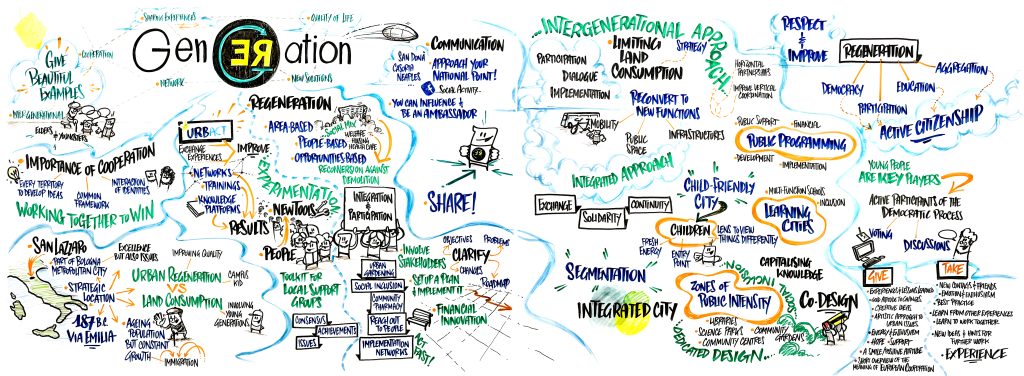 SHARING EXPERIENCES
QUALITY OF LIFE
GenERation
COOPERATION
GIVE
BEAUTIFUL
EXAMPLES
NETWORK
NEW SOLUTIONS
INTERGENERATIONAL
ELDERS & YOUNGSTERS
SAN DONÀ
NAPLES
COMMUNICATION
APPROACH YOUR
NATIONAL POINT!
SOCIAL ACTIVITY
YOU CAN INFLUENCE &
BE AN AMBASSADOR
SHARE!
IMPORTANCE OF COOPERATION
EVERY TERRITORY
TO DEVELOP IDEAS
COMMON
FRAMEWORK
INTERACTION
OF IDENTITIES
WORKING TOGETHER TO WIN
URBACT
EXCHANGE
EXPERIENCES
IMPROVE
NETWORKS
TRAININGS
KNOWLEDGE
PLATFORMS
RESULTS
REGENERATION
AREA-BASED
PEOPLE-BASED
OPPORTUNITIES BASED
SOCIAL MIX
WELFARE
HOUSING
HEALTHCARE
RECONVERSION AGAINST
DEMOLITION
EXPERIMENTATION
NEW TOOLS
PEOPLE
TOOLKIT FOR
LOCAL SUPPORT
GROUPS
CONSENSUS
ACHIEVEMENTS
ISSUES
INTEGRATION
&
PARTICIPATION
URBAN
GARDENING
SOCIAL INCLUSION
COMMUNITY
PHARMACY
REACH OUT
TO PEOPLE
IMPLEMENTATION
NETWORKS
ACT
FAST!
INVOLVE
STAKEHOLDERS
OBJECTIVES
PROBLEMS
CLARIFY
CHANGES
ROADMAP
SET UP A PLAN
& IMPLEMENT IT
FINANCIAL
INNOVATION
SAN LAZZARO
PART OF BOLOGNA
METROPOLITAN CITY
STRATEGIC
LOCATION
187 B.C.
VIA EMILIA
EXCELLENCE
BUT ALSO ISSUES
IMPROVING QUALITY
URBAN REGENERATION
VS
LAND CONSUMPTION
CAMPUS
KID
INVOLVING
YOUNG
GENERATIONS
AGEING
POPULATION
BUT CONSTANT
GROWTH
IMMIGRATION
...INTERGENERATIONAL APPROACH...
PARTICIPATION
DIALOGUE
IMPLEMENTATION
LIMITING
LAND
CONSUMPTION
STRATEGY
HORIZONTAL
PARTNERSHIPS
IMPROVE VERTICAL
COORDINATION
RECONVERT TO
NEW FUNCTIONS
MOBILITY
PUBLIC
SPACE
INFRASTRUCTURES
INTEGRATED APPROACH
EXCHANGE
SOLIDARITY
CONTINUITY
SEGMENTATION
INTEGRATED CITY
RESPECT
&
IMPROVE
REGENERATION
DEMOCRACY
PARTICIPATION
EDUCATION
AGGREGATION
ACTIVE CITIZENSHIP
PUBLIC SUPPORT
FINANCIAL
PUBLIC PROGRAMMING
DEVELOPMENT
IMPLEMENTATION
CHILD-FRIENDLY
CITY
CHILDREN
FRESH
ENERGY
ENTRY
POINT
LENS TO VIEW
THINGS DIFFERENTLY
MULTI-FUNCTION SCHOOLS
INCLUSION
LEARNING
CITIES
CAPITALISING
KNOWLEDGE
ZONES OF
PUBLIC INTENSITY
SOCIAL INCLUSION
LIBRARIES
SCIENCE PARKS
COMMUNITY CENTRES
COMMUNITY
GARDENS
DEDICATED DESIGN...
CO-DESIGN
YOUNG PEOPLE
ARE KEY PLAYERS
ACTIVE PARTICIPANTS OF THE
DEMOCRATIC PROCESS
VOTING
DISCUSSIONS
GIVE
EXPERIENCES & LESSONS LEARNED
CREATIVE IDEAS
ARTISTIC APPROACH TO
URBAN ISSUES
ENERGY & ENTHUSIASM
HOPE & SUPPORT
A SMILE/POSITIVE ATTITUDE
SHORT OVERVIEW OF THE
MEANING OF EUROPEAN COOPERATION
TAKE
NEW CONTACTS & FRIENDS
ENERGY & ENTHUSIASM
BEST PRACTICE
LEARN FROM OTHER EXPERIENCES
LEARN TO WORK TOGETHER
NEW IDEAS & HINTS FOR
FURTHER WORK
EXPERIENCE